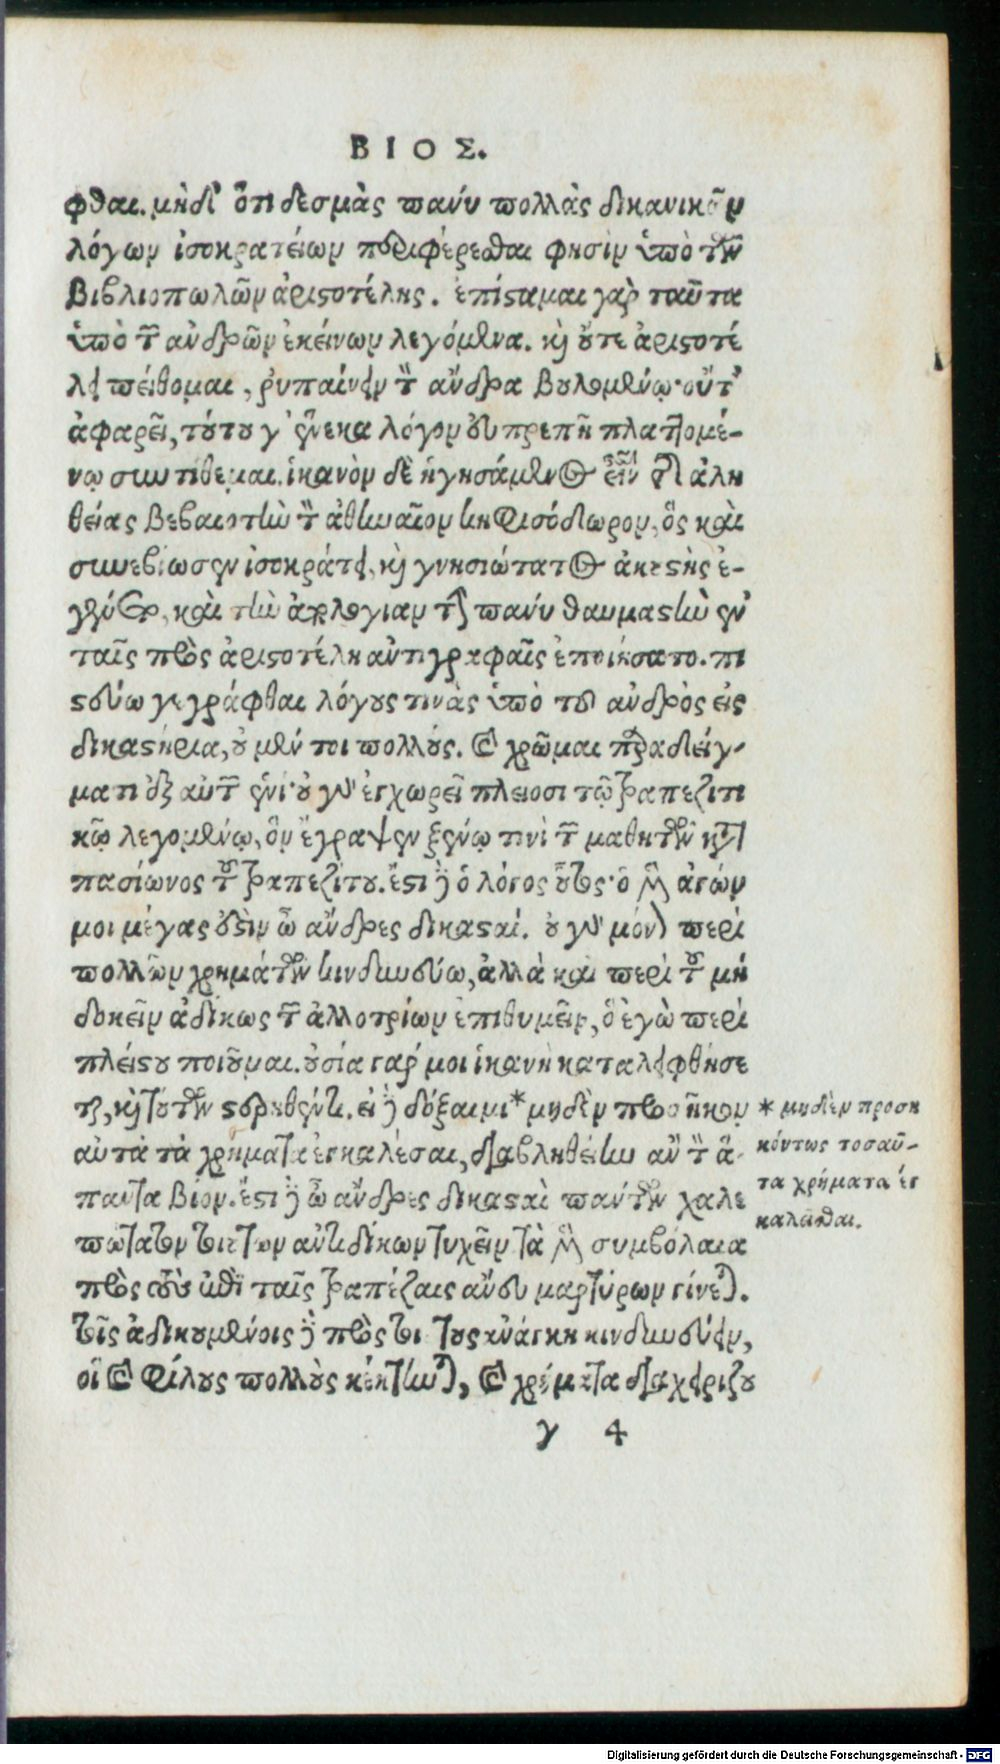 ΒΙΟΣ.
φθαι. μηδ' ὅτι δεσμὰς πανύ πολλὰς δικανικῶν
λόγων ἰσοκρατείων περιφέρεσθαι φησὶν ὑπὸ τῶν
βιβλιοπωλῶν ἀριστοτέλης. ἐπίσταμαι γὰρ ταῦτα
ὑπὸ τῶν ἀνδρῶν ἐκείνων λεγόμενα. καὶ οὔτε ἀριστοτέ
λει πείθομαι, ῥυπαίνειν τὸν ἄνδρα βουλομένῳ· οὔτ'
ἀφαρεῖ, τούτου γ' ἕνεκα λόγον εὐπρεπῆ πλαττομέ-
νῳ συντίθεμαι. ἱκανὸν δὲ ἡγησάμενος εἶναι τῆς ἀλη
θείας βεβαιωτὴν τὸν ἀθηναῖον κηφισόδωρον, ὃς καὶ
συνεβίωσεν ἰσοκράτει, καὶ γνησιώτατος ἀκουστὴς ἐ-
γένετο, καὶ τὴν ἀπολογίαν τὴν πανύ θαυμαστὴν ἐν
ταῖς πρὸς ἀριστοτέλη ἀντιγραφαῖς ἐποιήσατο. πι
στεύω γεγράφθαι λόγους τινὰς ὑπὸ τοῦ ἀνδρὸς εἰς
δικαστήρια, οὐ μέν τοι πολλούς. καὶ χρῶμαι παραδείγ-
ματι ἐξ αὐτῶν ἑνί· οὐ γὰρ ἐγχωρεῖ πλείοσι τῷ τραπεζιτι
κῷ λεγομένῳ, ὃν ἔγραψεν ξένῳ τινὶ τῶν μαθητῶν κατὰ
πασίωνος τοῦ τραπεζίτου. ἔστι δὲ ὁ λόγος οὗτος· ὁ μὲν ἀγών
μοι μέγας ἐστὶν ὦ ἄνδρες δικασταί. οὐ γὰρ μόνον περὶ
πολλῶν χρημάτων κινδυνεύω, ἀλλὰ καὶ περὶ τοῦ μὴ
δοκεῖν ἀδίκως τῶν ἀλλοτρίων ἐπιθυμεῖν, ὃ ἐγὼ περὶ
πλείστου ποιοῦμαι. οὐσία γάρ μοι ἱκανὴ καταλειφθήσε
ται, καὶ τούτων στερηθέντι. εἰ δὲ δόξαιμι* μηδὲν προσῆκον
αὐτὰ τὰ χρήματα ἐγκαλέσαι, διαβληθείην ἂν τὸν ἅ-
παντα βίον. ἔστι δὲ ὦ ἄνδρες δικασταὶ πάντων χαλε
πώτατον τοιούτων ἀντιδίκων τυχεῖν τὰ μὲν συμβόλαια
πρὸς τοὺς ἐπὶ ταῖς τραπέζαις ἄνευ μαρτύρων γίνεται.
τοῖς ἀδικουμένοις δὲ πρὸς τοιούτους ἀνάγκη κινδυνεύειν,
οἳ καὶ φίλους πολλοὺς κέκτηνται, καὶ χρήματα διαχειρίζου
* μηδὲν προση
κόντως τοσαῦ-
τα χρήματα ἐγ
καλεῖσθαι.
γ 4
Digitalisierung gefördert durch die Deutsche Forschungsgemeinschaft - DFG